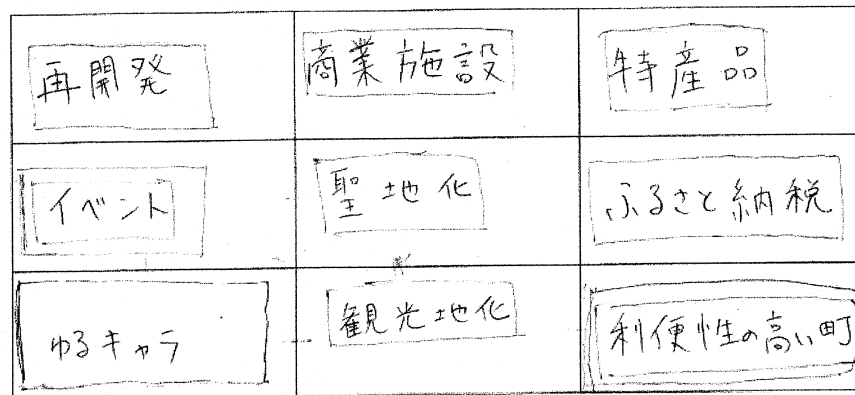 再開発
商業施設
特産品
イベント
聖地化
ふるさと納税
ゆるキャラ
観光地化
利便性の高い町